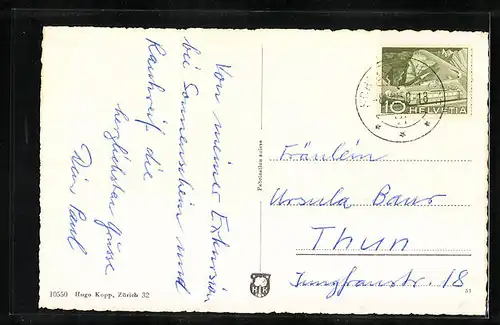 Von meiner Exkursion
bei Sonnenschein und
Rauhreif die
herzlichsten Grüsse
Dein Paul
Fräulein
Ursula Baur
Thun
Jungfraustr. 18
HELVETIA
10
10550 Hugo Kopp, Zürich 32